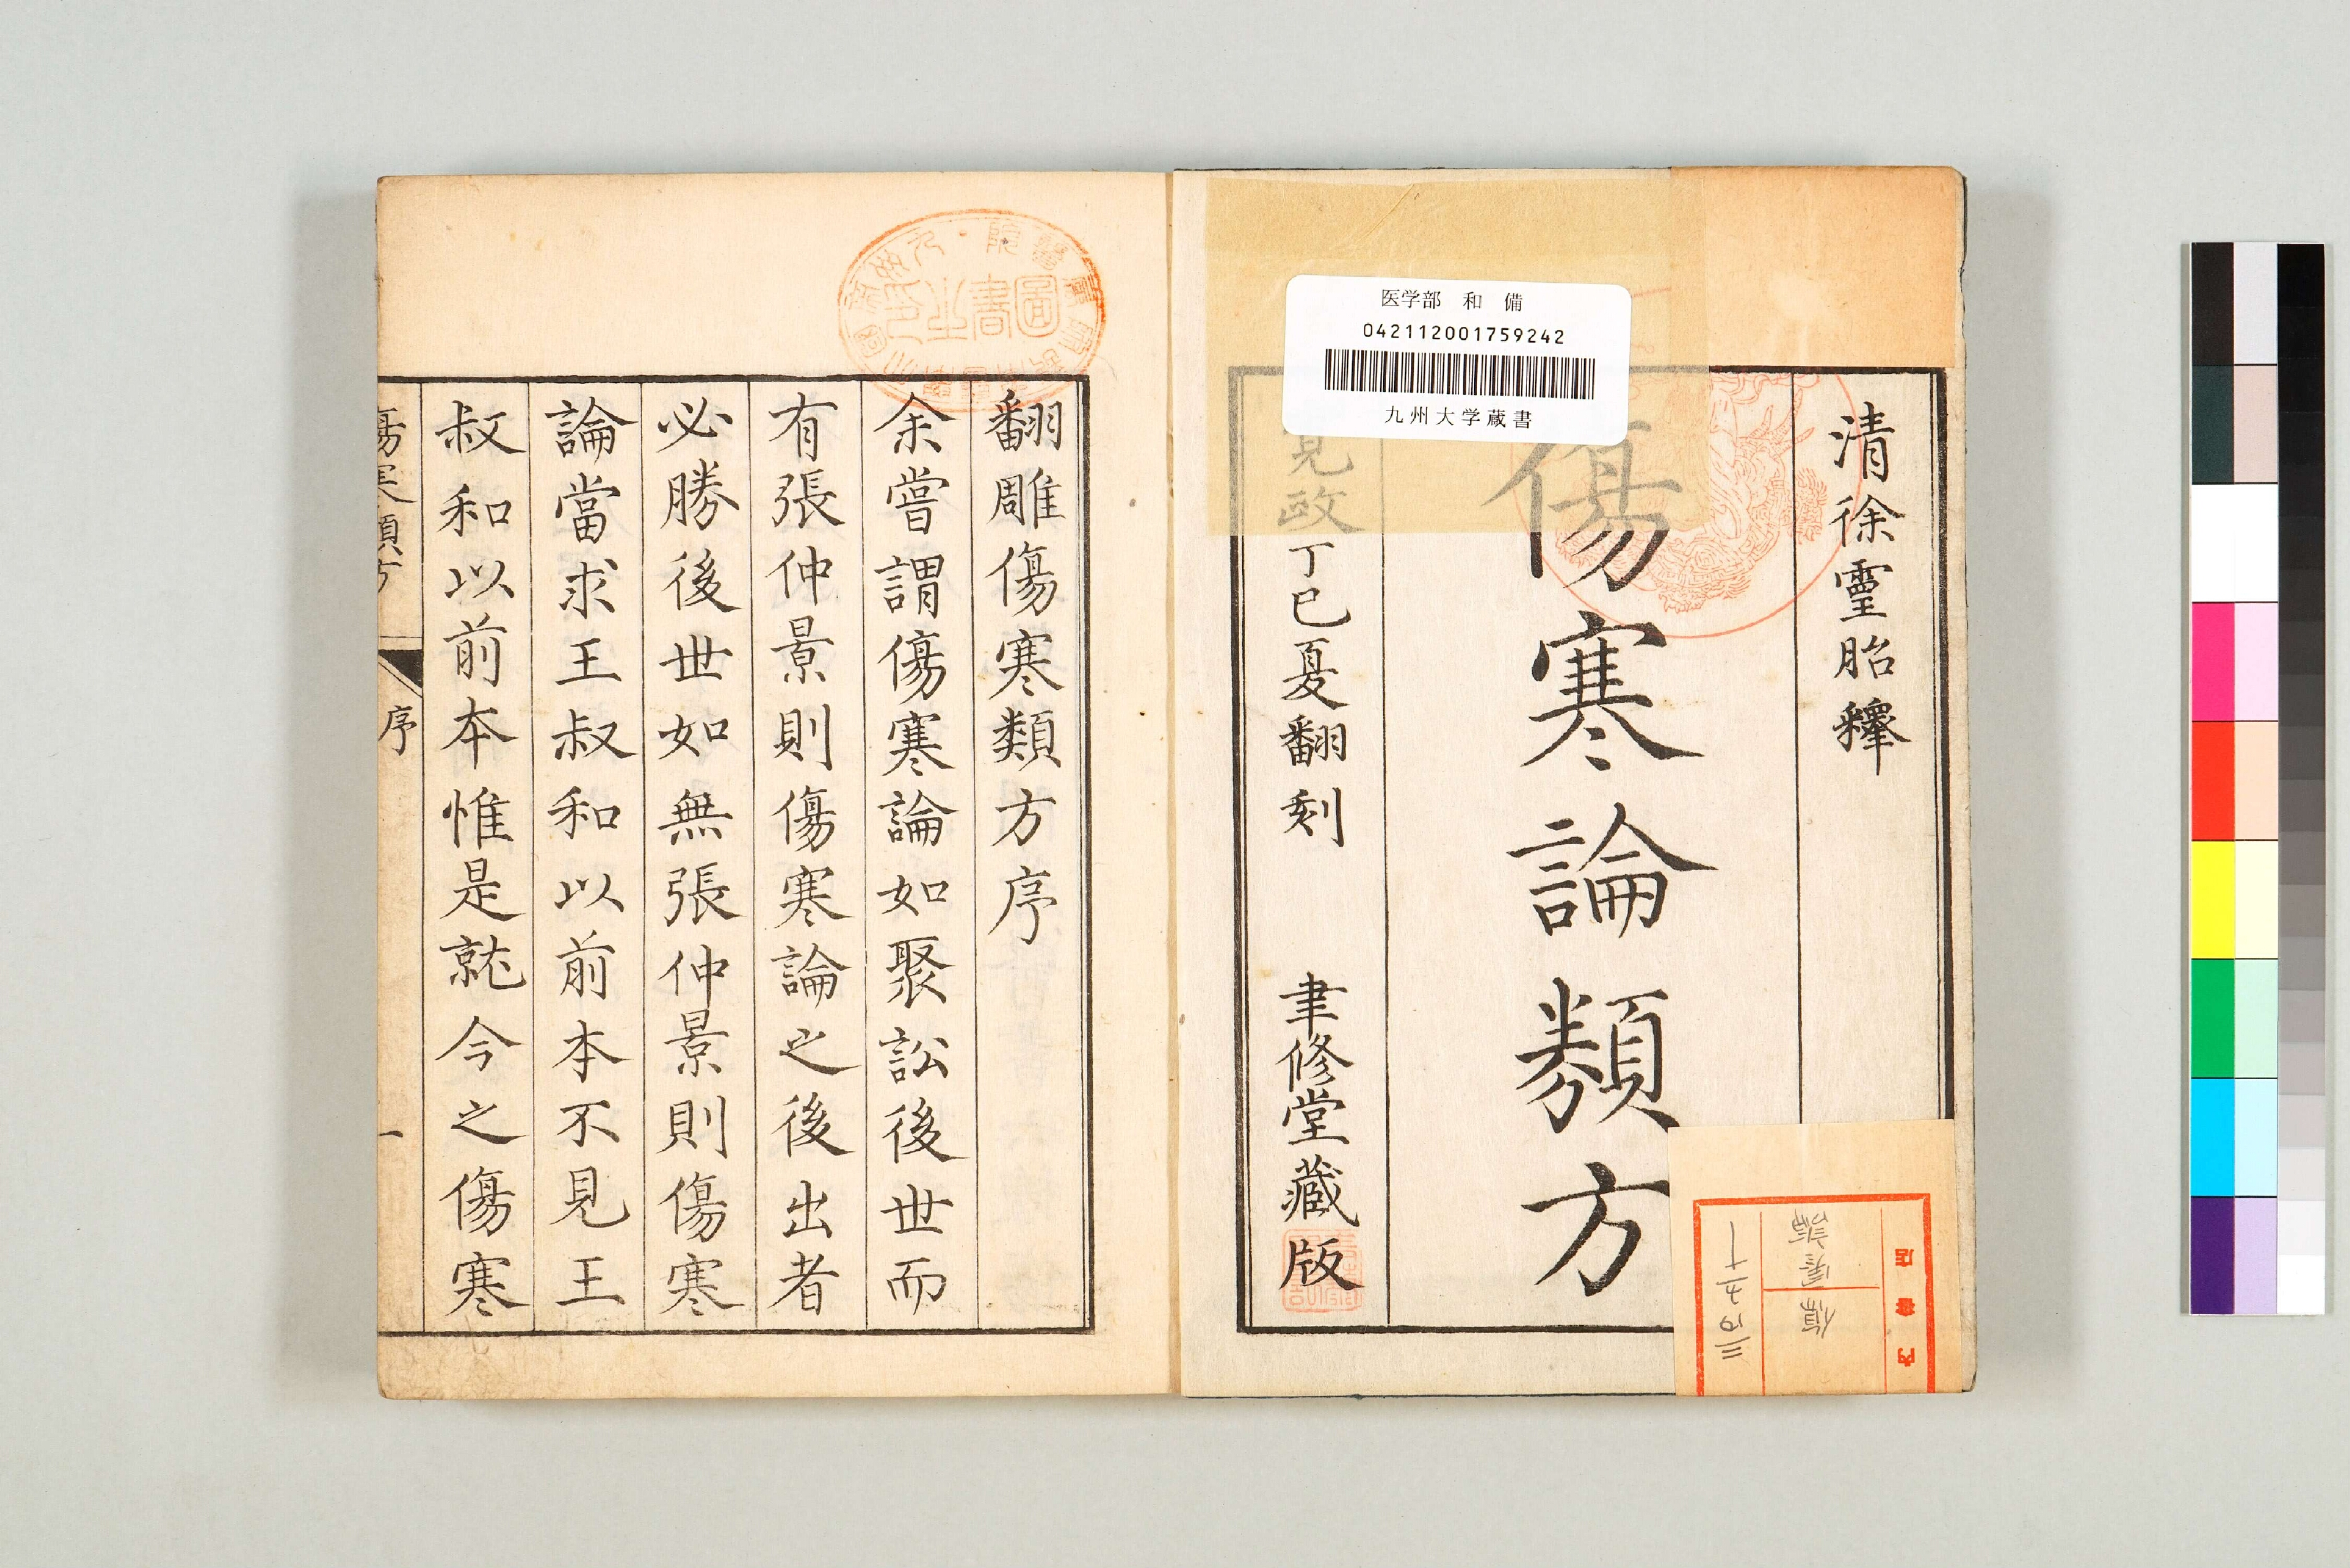 医学部 和 備
042112001759242
九州大学蔵書
清徐靈胎釋
傷寒論類方
見政丁巳夏翻刻 聿修堂藏版
翻雕傷寒類方序
余嘗謂傷寒論如聚訟後世而
有張仲景則傷寒論之後出者
必勝後世如無張仲景則傷寒
論當求王叔和以前本不見王
叔和以前本惟是就今之傷寒
序
一
圖書之印